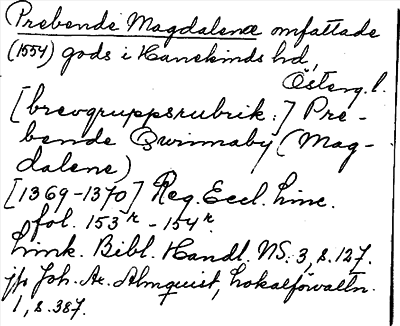 Prebende Magdalenæ omfattade
(1554) gods i Hanekinds hd,
Österg. l.
[brevgruppsrubrik:] Pre-
bende Qwinnaby (Mag-
dalene)
[1369-1370] Reg. Eccl. Linc.
fol. 153r - 154r.
Link. Bibl. Handl. NS. 3, s. 127.
jfr Joh. Ax. Almquist, Lokalförvaltn.
1, s. 387.